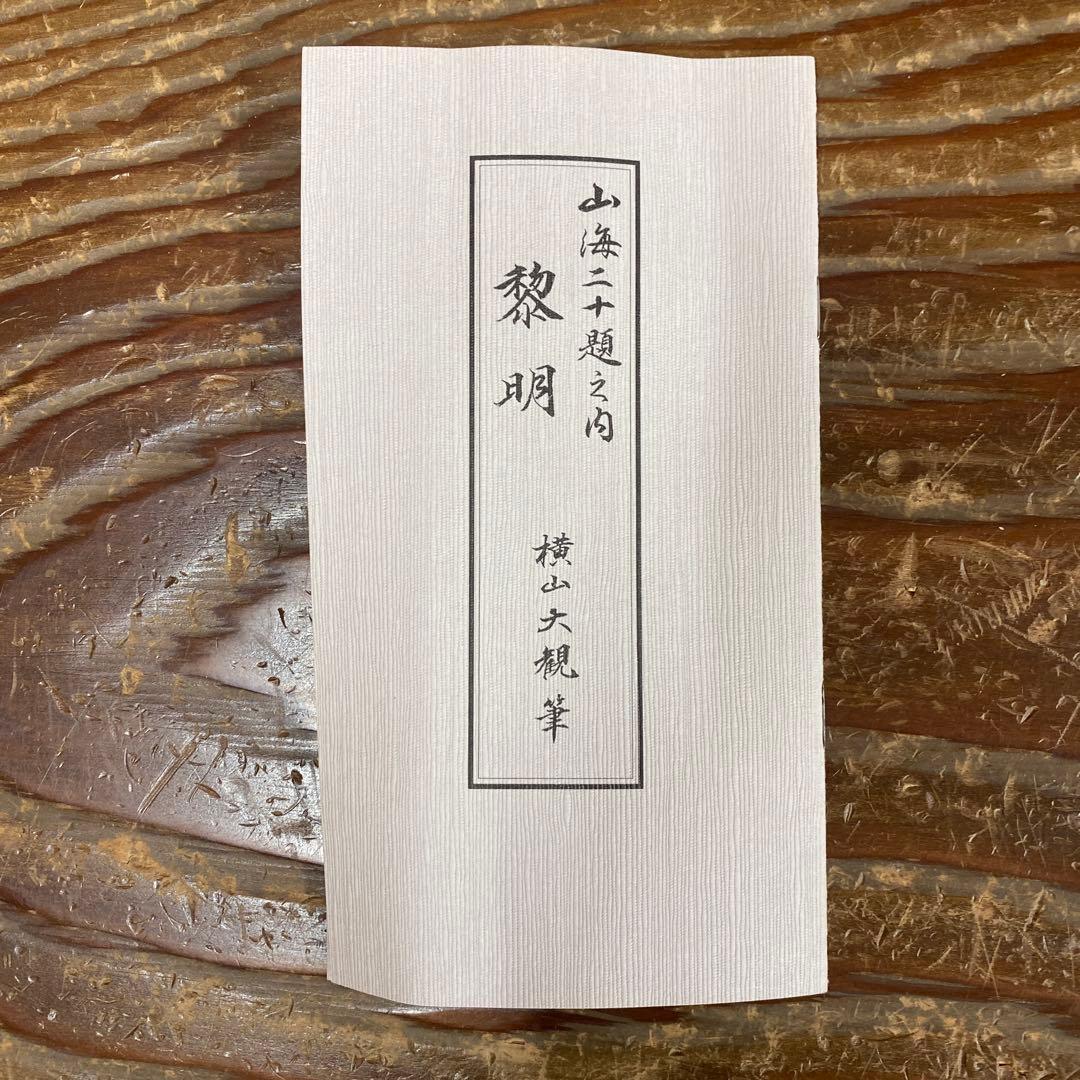 山海二十題之内
黎明
横山大観筆